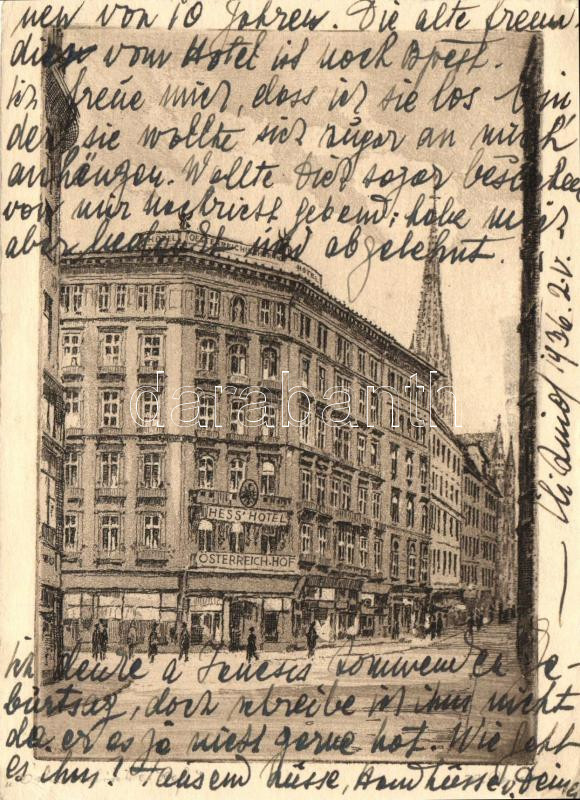 nen von 10 Jahren. Die alte freun-
din vom Hotel ist noch
Ich freue mich, dass ich sie los bin
der sie wollte sich sogar an mich
anhängen. Wollte Dich sogar
von mir Nachricht gebend; habe mich
aber und abgelehnt.
1936. 2. V.
HOTEL
darabanth
HESS' HOTEL
ÖSTERREICH-HOF
Ich denke a kommenden Ge-
burtsag, doch schreibe ich ihm nicht
da er es ja nicht gerne hat. Wie geht
es ihm! Tausend Küsse, Handküsse, Deine